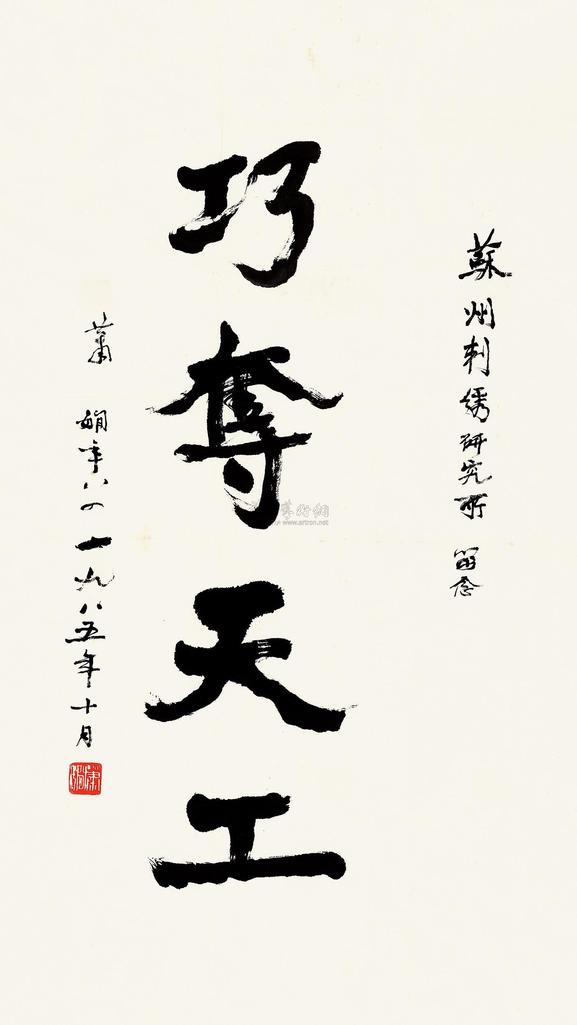 蘇州刺绣研究所 留念
巧奪天工
萧娴年八四一九八五年十月
萧娴
www.artron.net